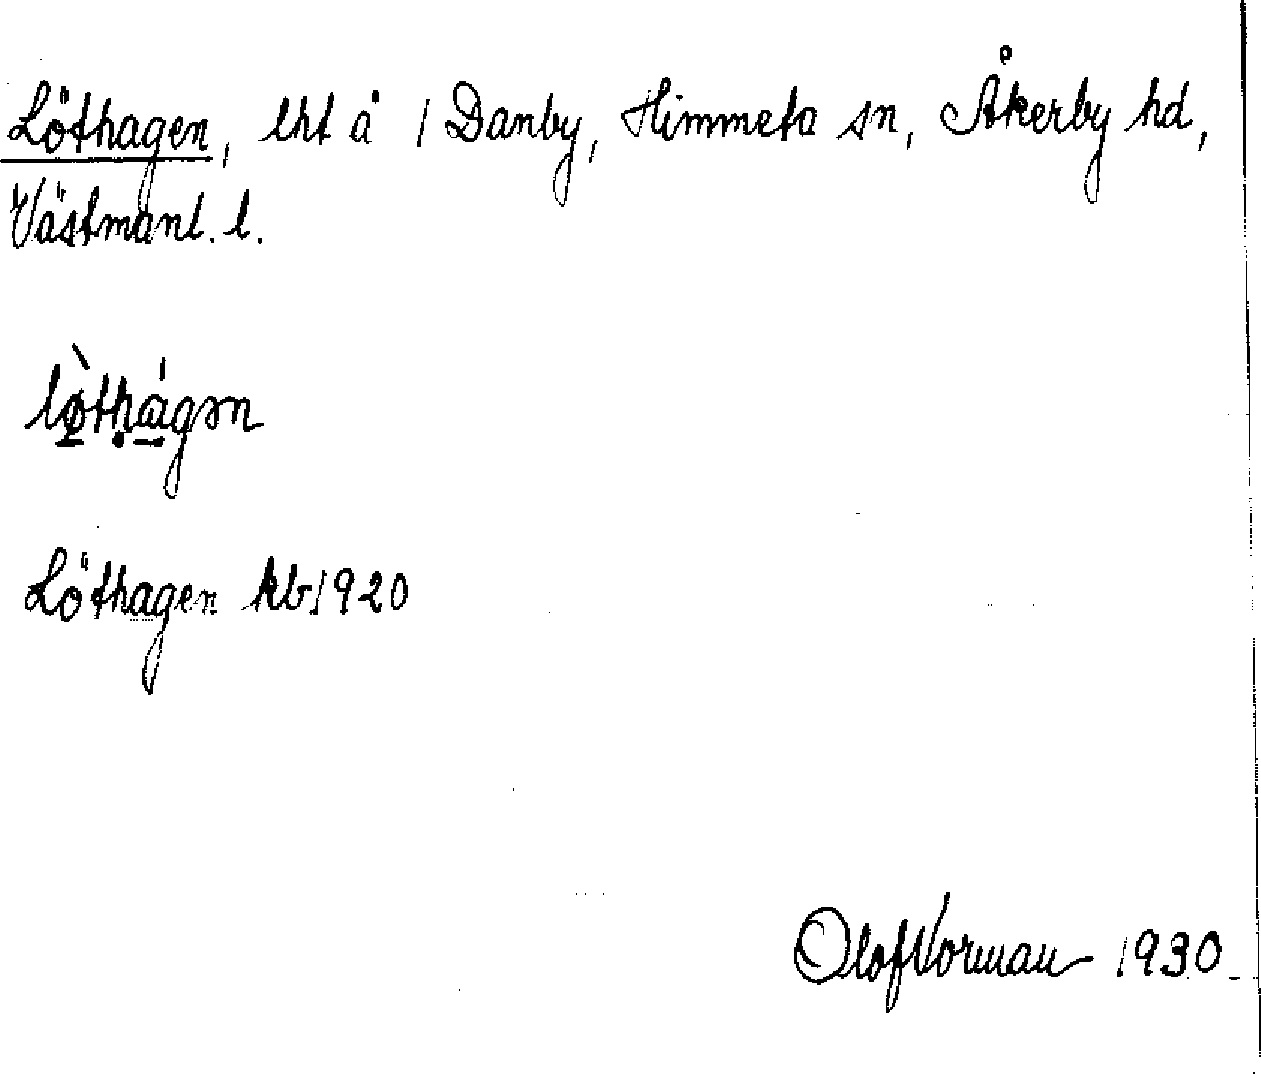 Löthagen, lht å 1 Danby, Himmeta sn, Åkerby hd,
Västmanl. l.
lø̀thágən
Löthagen kb 1920
Olof Norman 1930